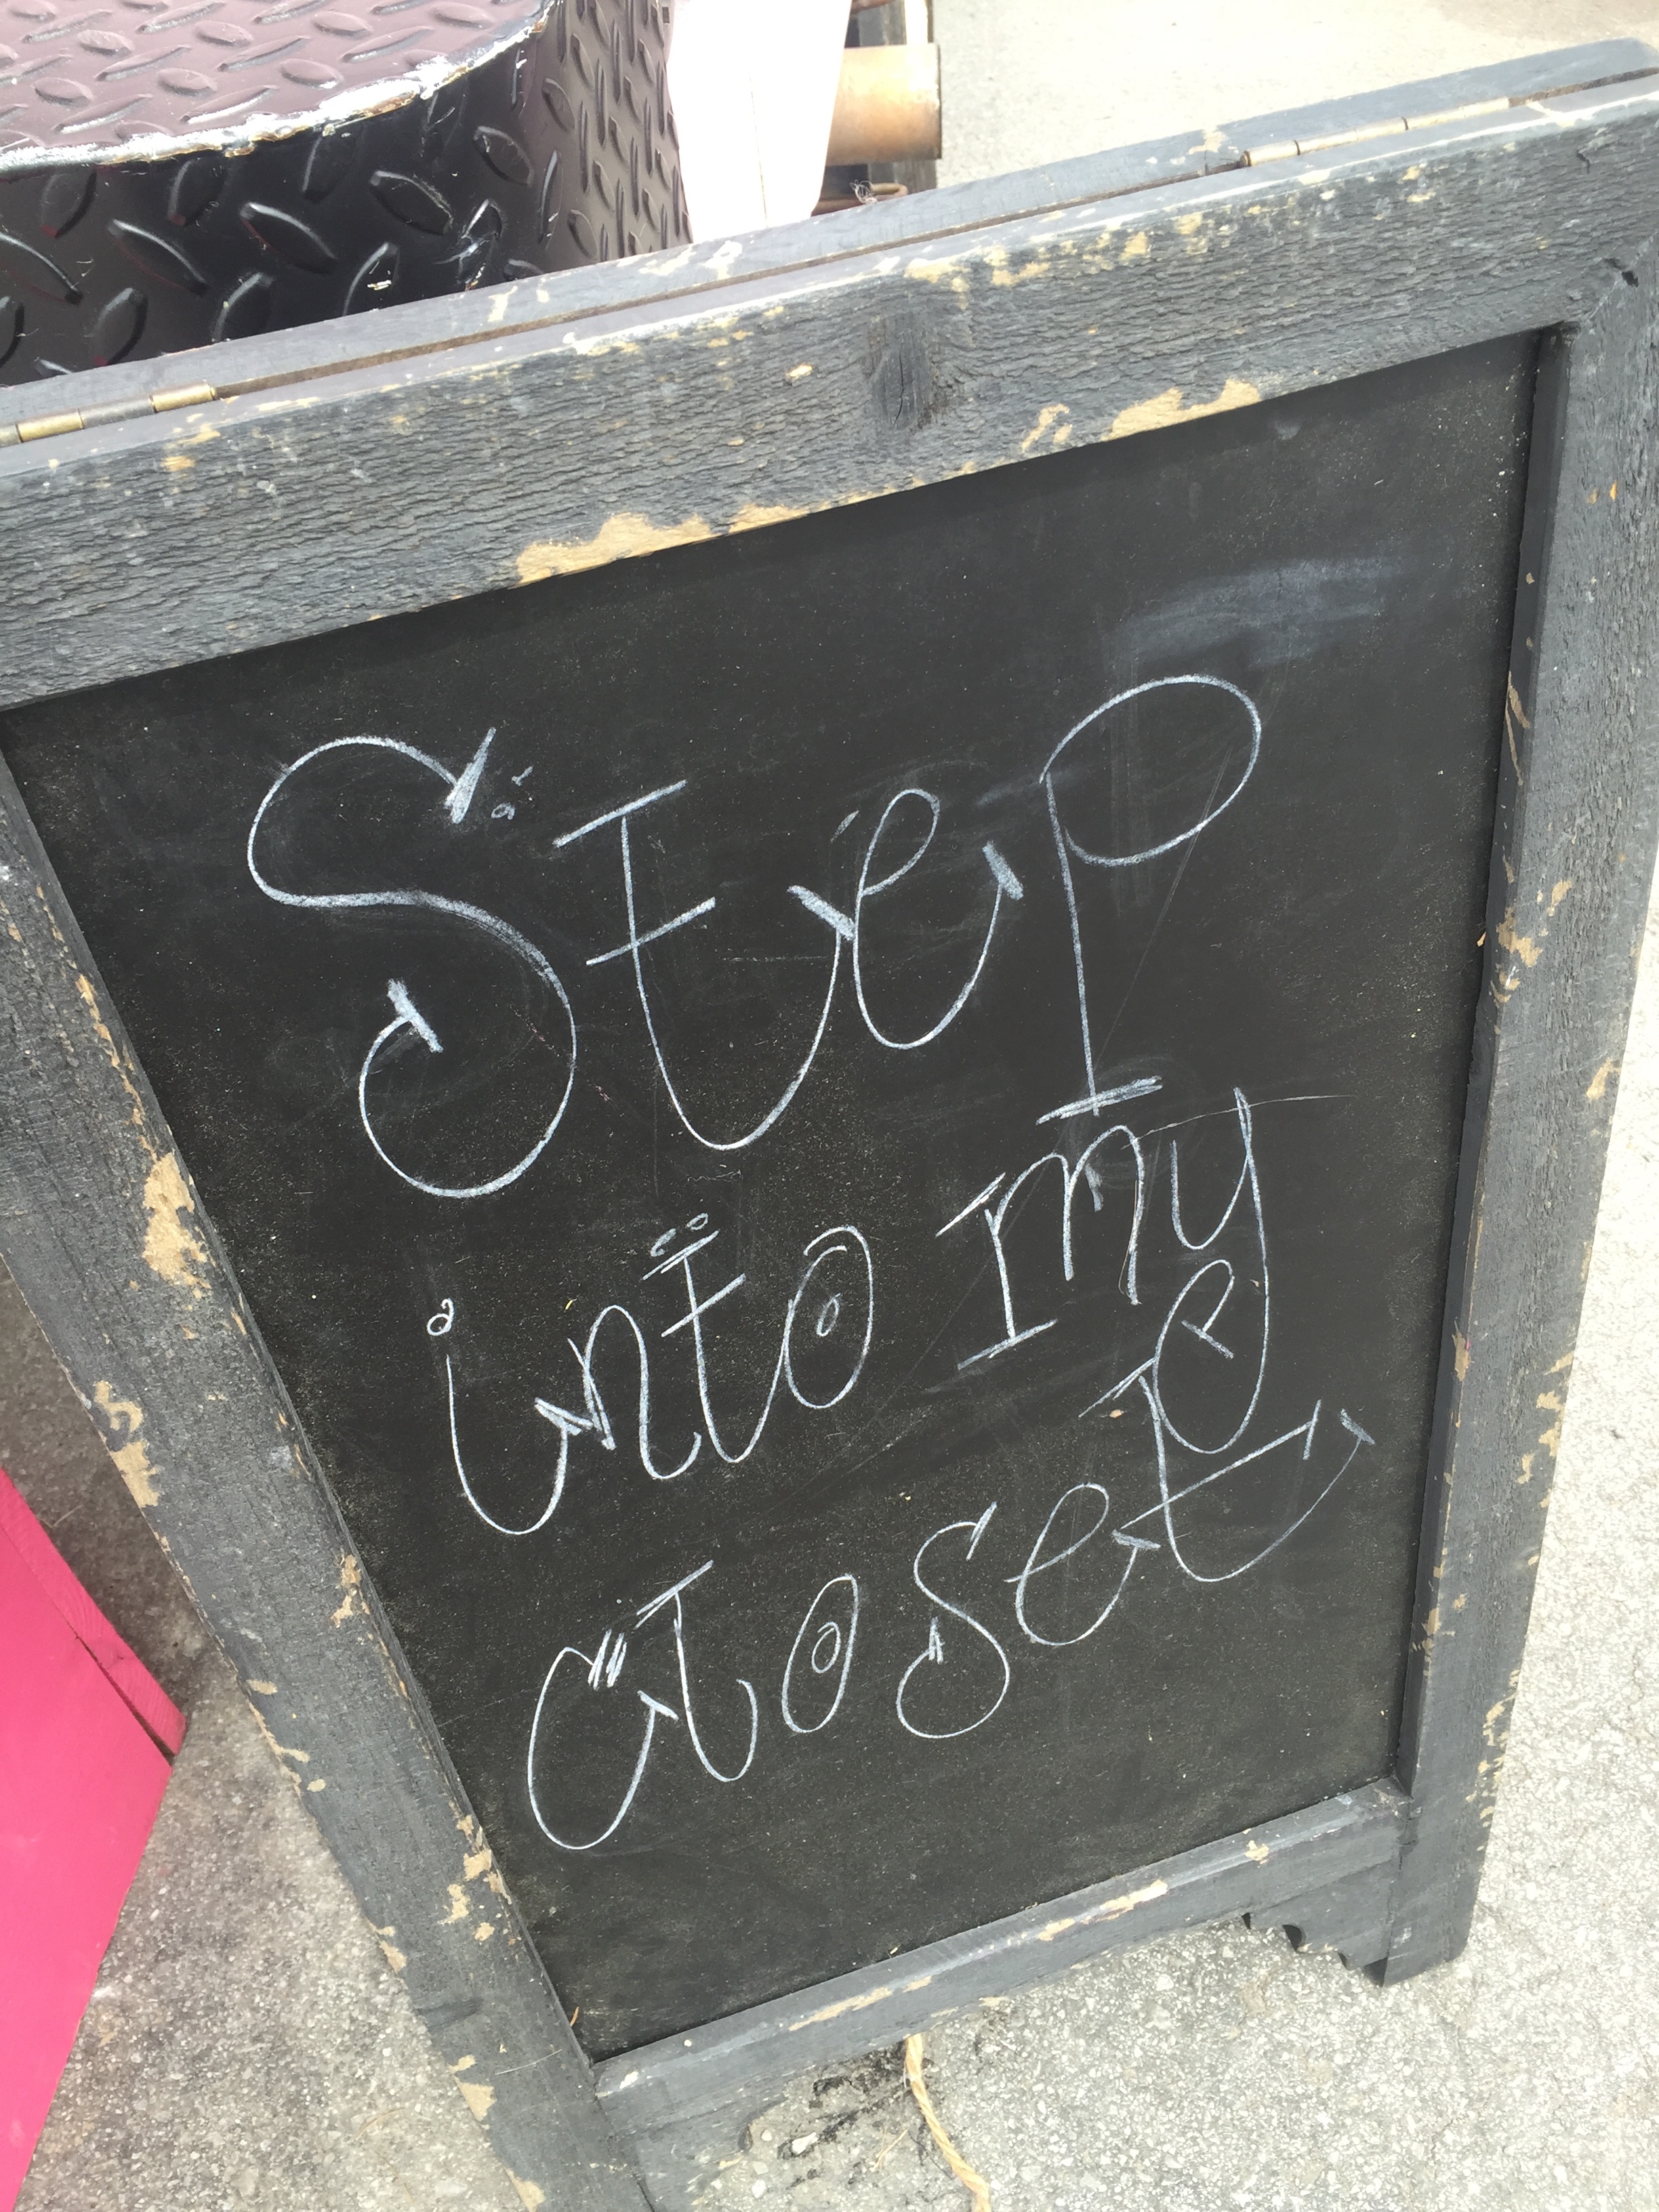 Step
into my
closet